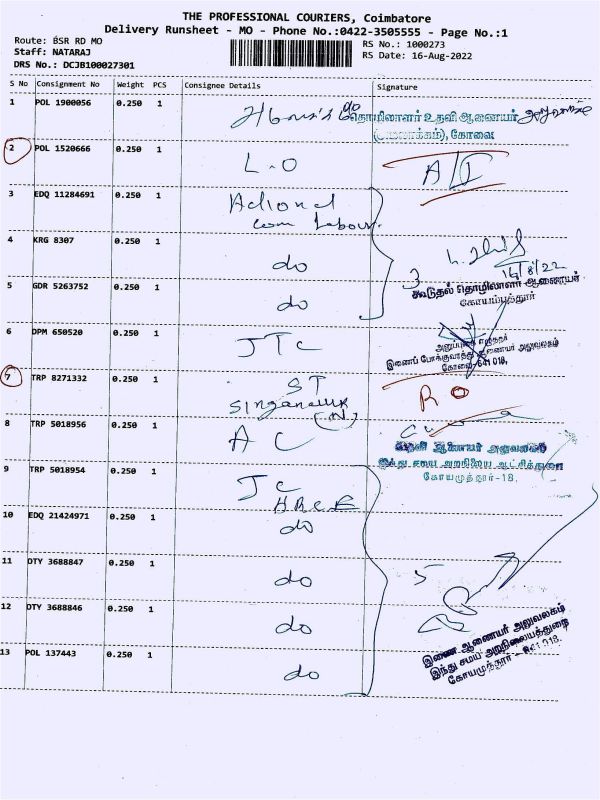 THE PROFESSIONAL COURIERS, Coimbatore
Delivery Runsheet - MO - Phone No.:0422-3505555 - Page No.:1
Route: BSR RD MO
Staff: NATARAJ
DRS No.: DCJB100027301
RS No.: 1000273
RS Date: 16-Aug-2022
S No Consignment No Weight PCS Consignee Details Signature
1 POL 1900056 0.250 1
தொழிலாளர் உதவி ஆணையர்
(அமலாக்கம்), கோவை
2 POL 1520666 0.250 1 L.O
3 EDQ 11284691 0.250 1 Adional
com Labour.
4 KRG 8307 0.250 1 do
3
16/8/22
5 GDR 5263752 0.250 1 do
கூடுதல் தொழிலாளர் ஆணையர்
கோயம்புத்தூர்
6 DPM 650520 0.250 1 JTC
இணைப் போக்குவரத்து ஆணையர் அலுவலகம்
கோவை-641 018.
7 TRP 8271332 0.250 1 ST
Singanallur
(N)
RO
8 TRP 5018956 0.250 1 AC
உதவி ஆணையர் அலுவலகம்
இந்து சமய அறநிலைய ஆட்சித்துறை
கோயமுத்தூர்-18.
9 TRP 5018954 0.250 1 JC
HRCE
10 EDQ 21424971 0.250 1 do
11 DTY 3688847 0.250 1 do
5
12 DTY 3688846 0.250 1 do
13 POL 137443 0.250 1 do
இணை ஆணையர் அலுவலகம்
இந்து சமய அறநிலையத்துறை
கோயமுத்தூர் - 641 018.